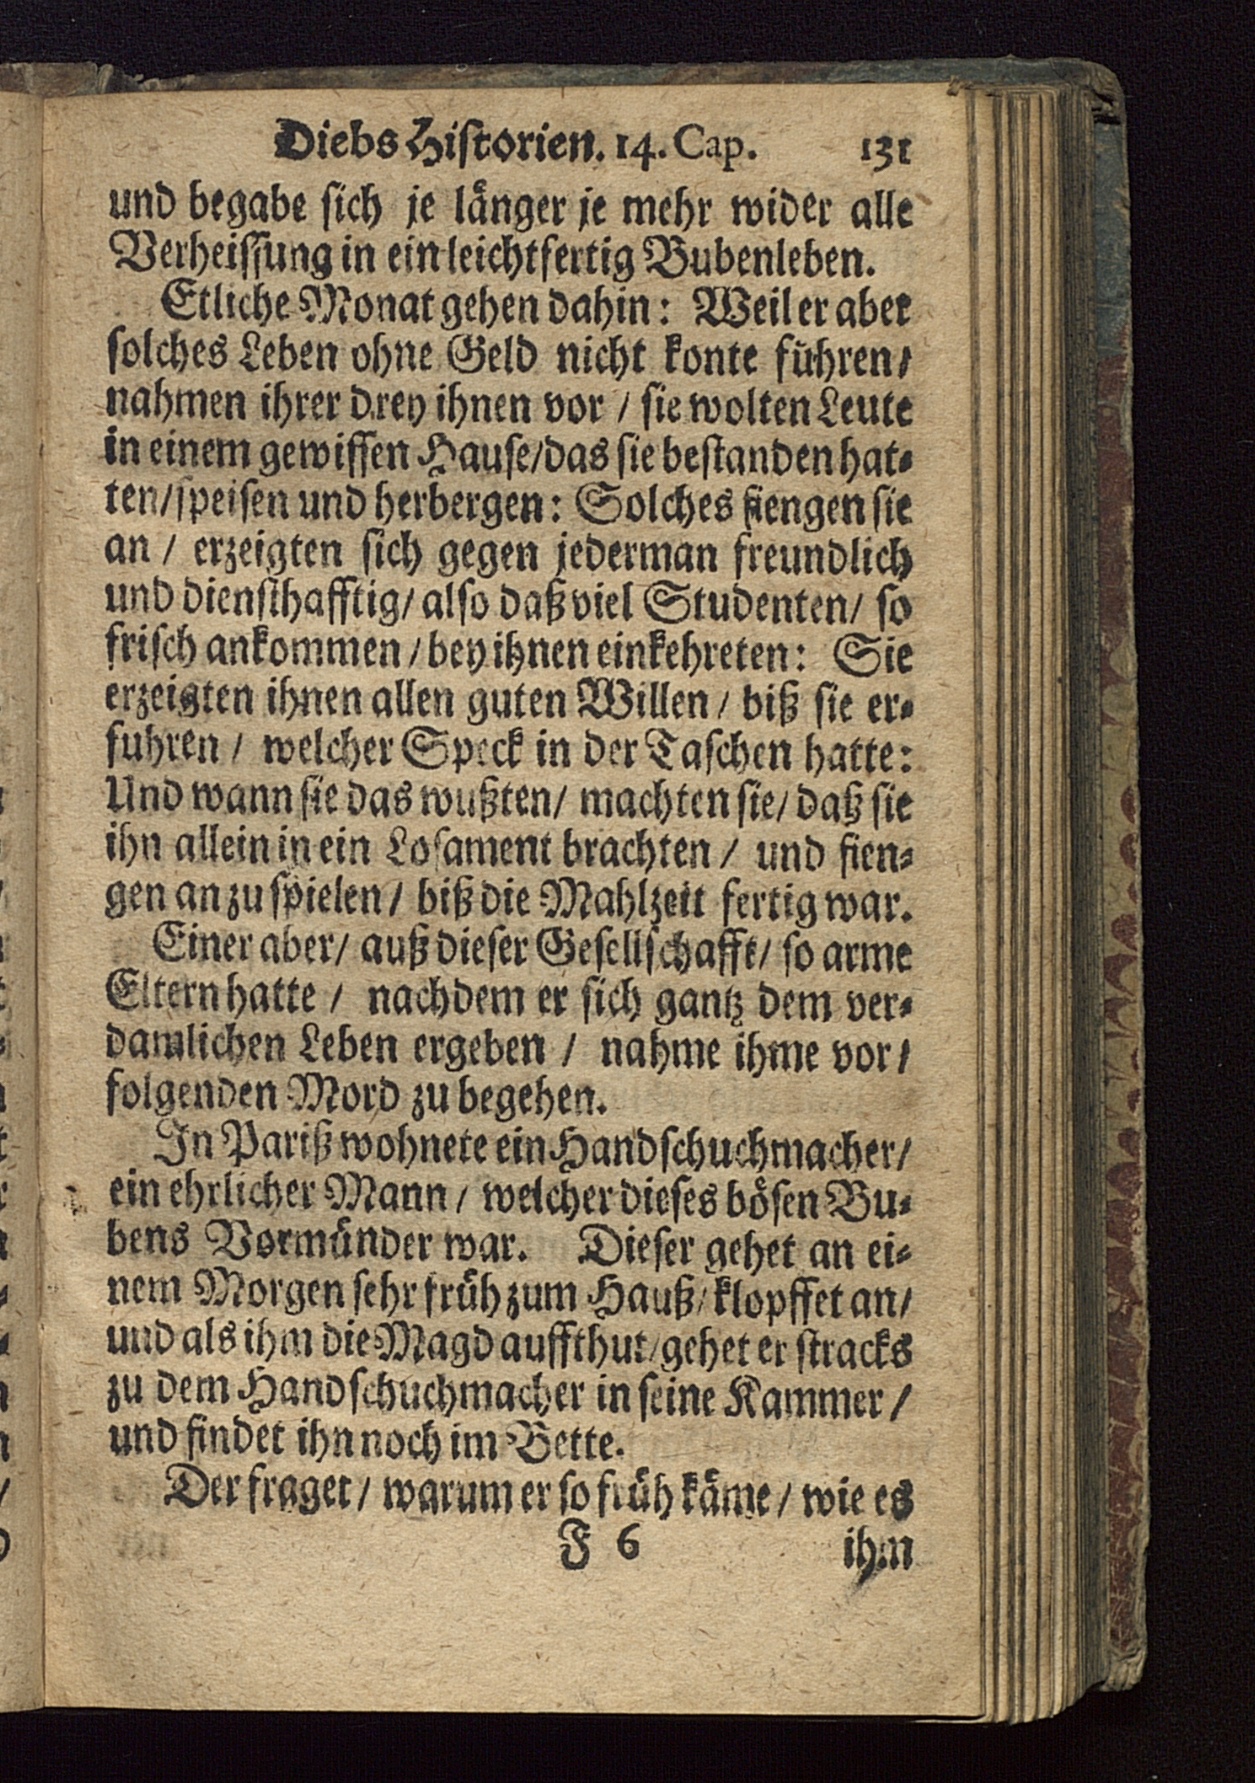 Diebs Historien. 14. Cap. 131
und begabe sich je länger je mehr wider alle
Verheissung in ein leichtfertig Bubenleben.
Etliche Monat gehen dahin: Weil er aber
solches Leben ohne Geld nicht konte führen/
nahmen ihrer drey ihnen vor / sie wolten Leute
in einem gewissen Hause/das sie bestanden hat⸗
ten/speisen und herbergen: Solches fiengen sie
an / erzeigten sich gegen jederman freundlich
und diensthafftig/ also daß viel Studenten/ so
frisch ankommen / bey ihnen einkehreten: Sie
erzeigten ihnen allen guten Willen / biß sie er⸗
fuhren / welcher Speck in der Taschen hatte:
Und wann sie das wußten/ machten sie/ daß sie
ihn allein in ein Losament brachten / und fien⸗
gen an zu spielen / biß die Mahlzeit fertig war.
Einer aber/ auß dieser Gesellschafft/ so arme
Eltern hatte / nachdem er sich gantz dem ver⸗
damlichen Leben ergeben / nahme ihme vor/
folgenden Mord zu begehen.
In Pariß wohnete ein Handschuchmacher/
ein ehrlicher Mann / welcher dieses bösen Bu⸗
bens Vormünder war. Dieser gehet an ei⸗
nem Morgen sehr früh zum Hauß/ klopffet an/
und als ihm die Magd auffthut/gehet er stracks
zu dem Handschuchmacher in seine Kammer /
und findet ihn noch im Bette.
Der fraget / warum er so früh käme / wie es
F 6 ihm